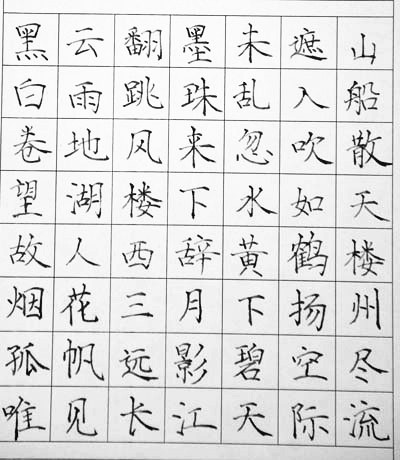 黑云翻墨未遮山
白雨跳珠乱入船
卷地风来忽吹散
望湖楼下水如天
故人西辞黄鹤楼
烟花三月下扬州
孤帆远影碧空尽
唯见长江天际流